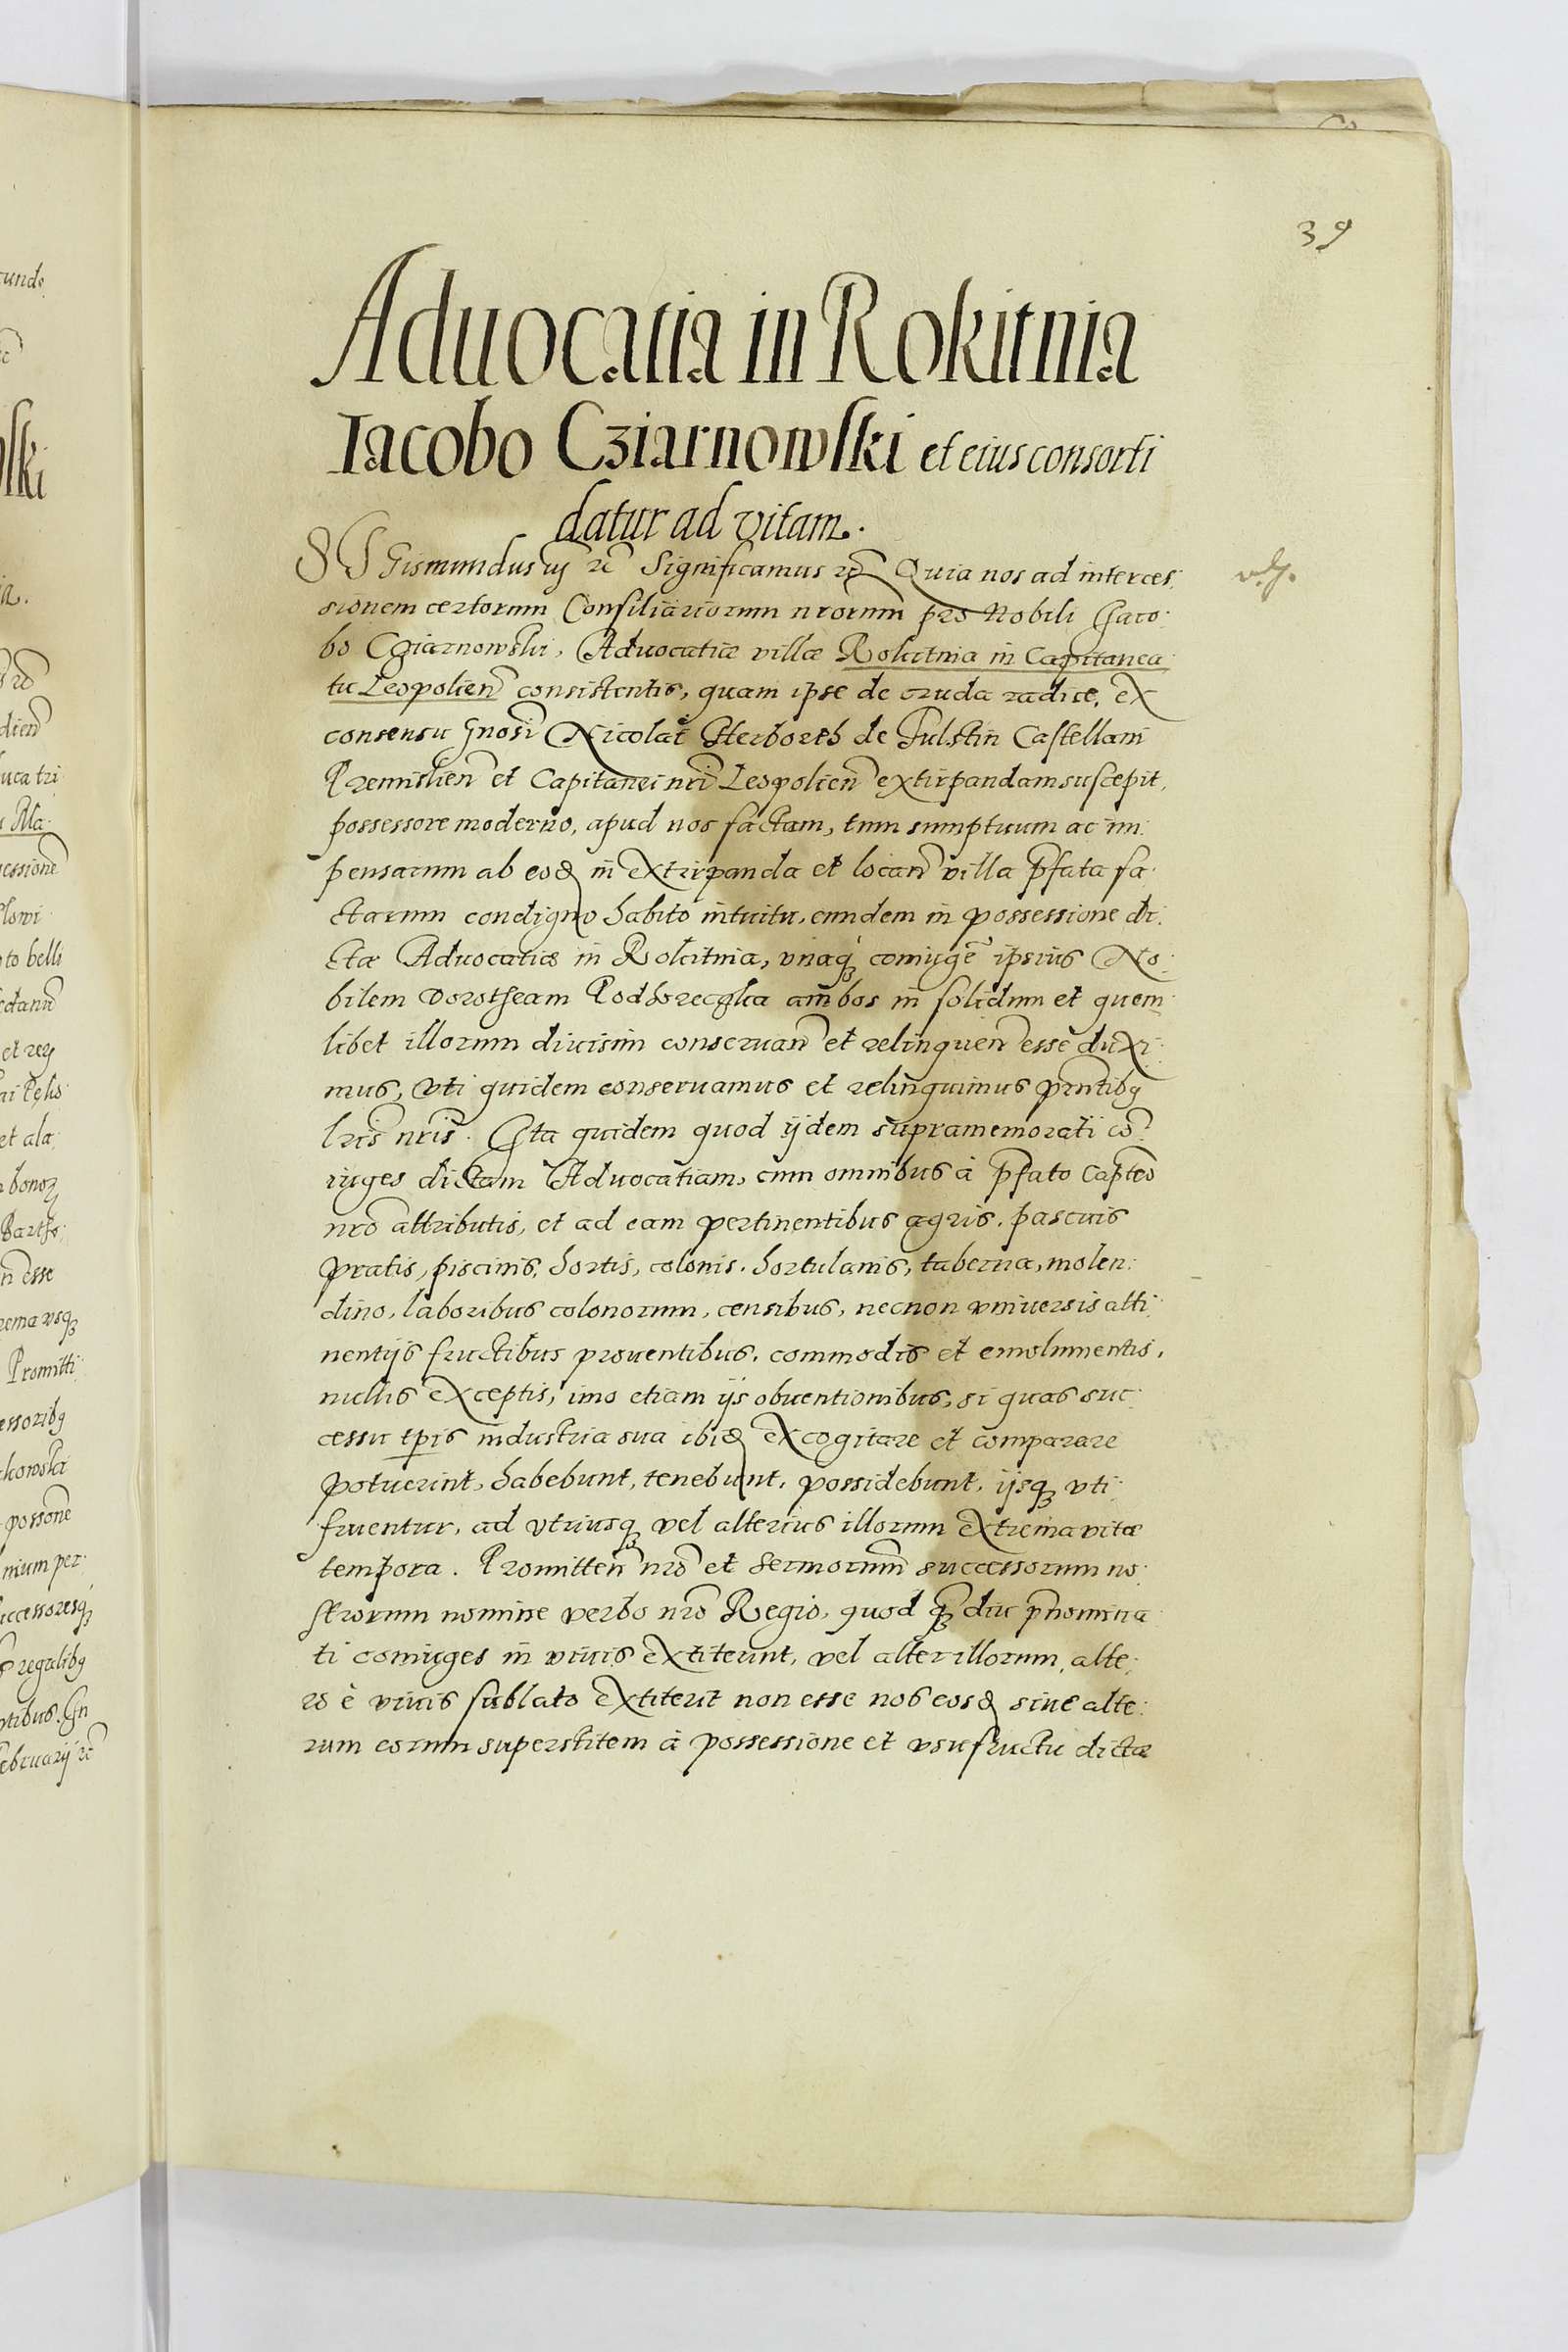 39
Aduocatia in Rokitnia
Iacobo Cziarnowski et eius consorti
datur ad vitam.
SIGismundus iij rc̃ Significamus rc̃ Quia nos ad interces:
sionem certorum Consiliariorum nrorum̃ pro Nobili Jaco:
bo Cziarnowski, Aduocatiæ villæ Rokitnia in Capitanea
tu Leopolien̄ consistentis, quam ipse de cruda radice, ex
consensu Gnosi Nicolai Herborth de Fulstin Castellani
Præmislien̄ et Capitanei nri Leopolien̄ extirpandam suscepit,
possessore moderno, apud nos factam, tum sumptuum ac im:
pensarum ab eod̄ in extirpanda et locan̄ villa p̄fata fa:
ctarum condigno habito intuitu, eundem in possessione di:
ctæ Aduocatiæ in Rokitnia, vnaq; coniugē ipsius No:
bilem Dorotheam Podhoreczka ambos in solidum et quem
libet illorum diuisim conseruan̄ et relinquen̄ esse duxi:
mus, vti quidem conseruamus et relinquimus pr̄ntibq
lris nris. Ita quidem quod ijdem supramemorati cō:
iuges dictam Aduocatiam, cum omnibus à p̄fato Capteo
nro attributis, et ad eam pertinentibus agris, pascuis
pratis, piscinis, hortis, colonis, hortulanis, taberna, molen:
dino, laboribus colonorum, censibus, necnon vniuersis atti:
nentijs fructibus prouentibus, commodis et emolumentis,
nullis exceptis, imo etiam ijs obuentionibus, si quas suc:
cessu tp̄is industria sua ibid̄ excogitare et comparare
potuerint, habebunt, tenebunt, possidebunt, ijsq; vti
fruentur, ad vtriusq; vel alterius illorum extrema vitæ
tempora. Promitten̄ nro et Sermorum̄ successorum no:
strorum nomine verbo nro Regio, quod q̄; diu p̄nomina
ti coniuges in viuis extiterint, vel alter illorum, alte:
ro è viuis sublato extiterit non esse nos eosd̄ siue alte:
rum eorum superstitem à possessione et vsufructu dictæ